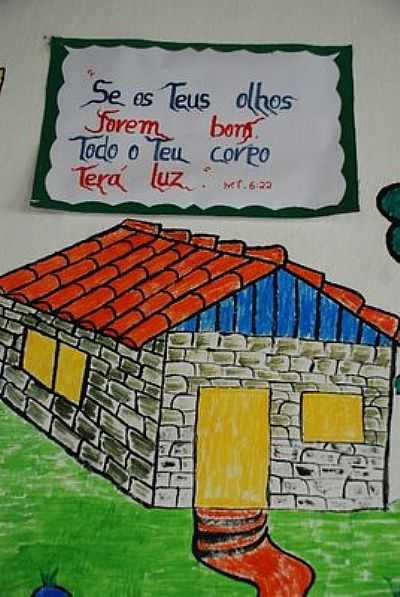 "Se os Teus olhos
forem bons.
Todo o Teu corpo
Terá luz." MT. 6:22